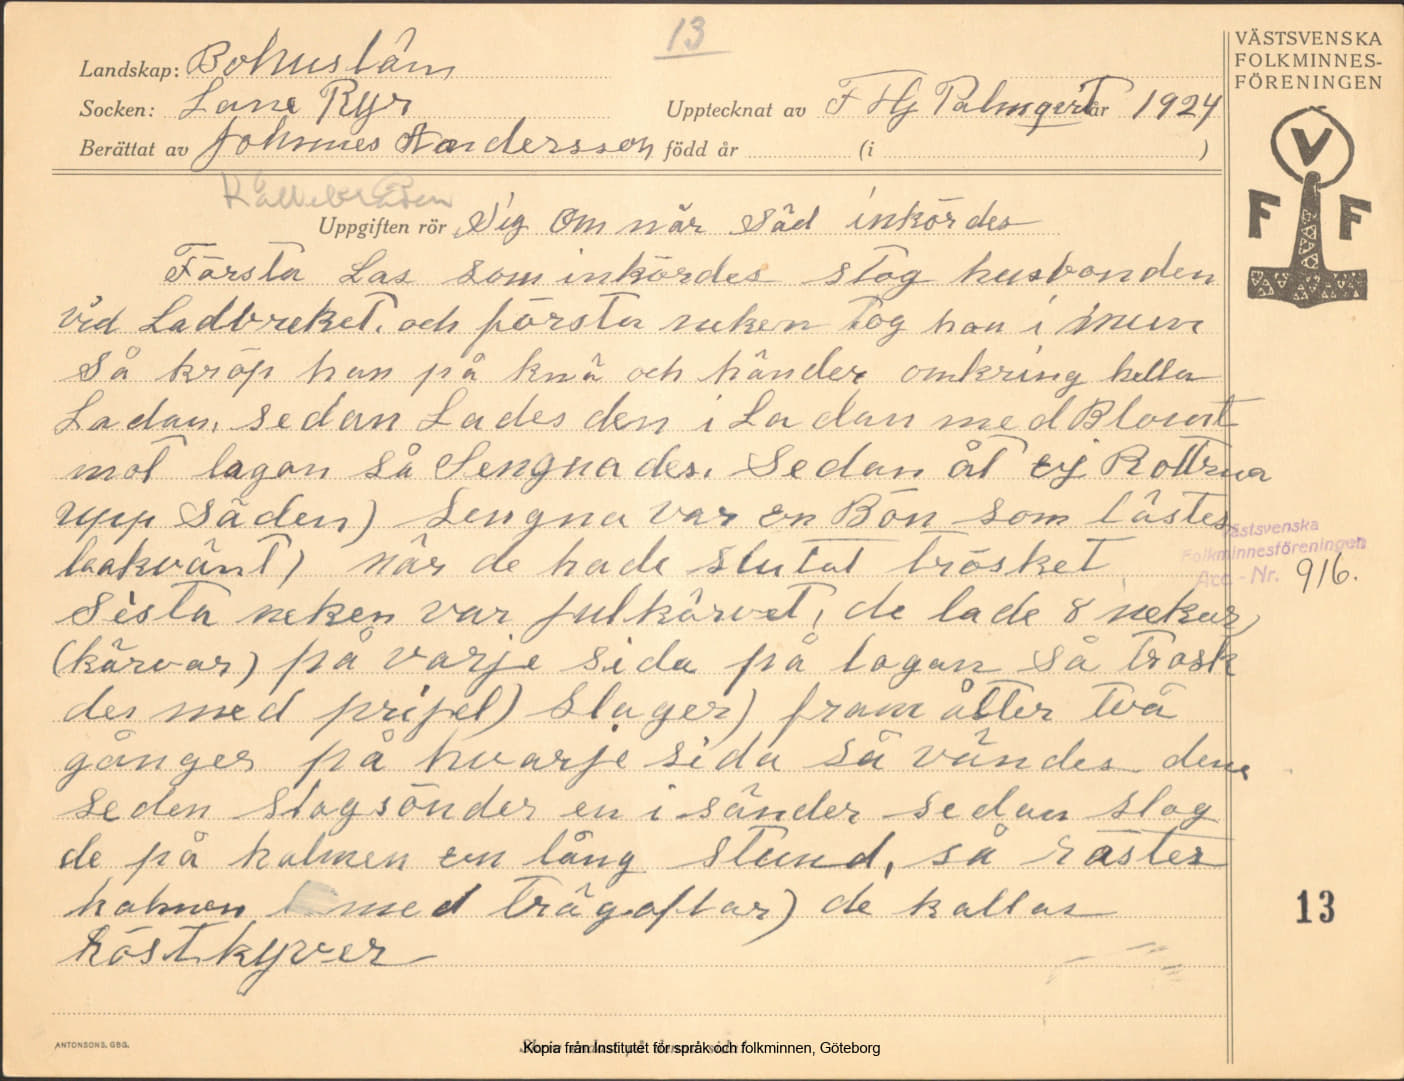 13
VÄSTSVENSKA
FOLKMINNES-
FÖRENINGEN
V
F F
Landskap: Bohuslän
Socken: Lane Ryr
Upptecknat av F Hj Palmqert år 1924
Berättat av Johnnes Andersson född år (i )
Uppgiften rör Sig Om när Säd inkördes
Första Las som inkördes stog husbonden
vid Ladbreket. och första neken tog han i mun
Så kröp han på knä och händer omkring hella
Ladan. sedan Lades den i Ladan med Blomt
mot lagan så Sengnades. Sedan åt ej Rottna
upp Säden) Sengna var en Bön som lästes
laakvänt) när de hade slutat trösket
Sista neken var Julkärvet, de lade 8 nekar
(kärvar) på varje sida på logan så trösk
des med prijel) Slager) fram åtter två
gånger på hvarje sida så vändes dene
seden slogsönder en i sänder sedan slog
de på halmen en lång stund, så rästes
halmen med trägaflar) de kallas
Röstkyver
Västsvenska
Folkminnesföreningen
Acc.-Nr. 916.
13
ANTONSONS, GBG.
Kopia från Institutet för språk och folkminnen, Göteborg